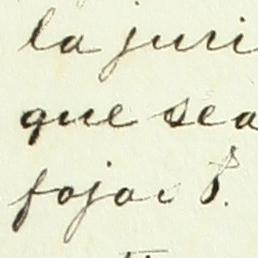 la juri
que sea
fojas 8.